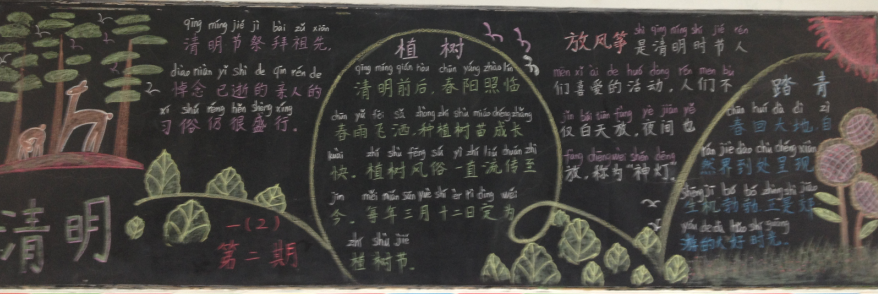 qīng míng jié jì bài zǔ xiān
清明节祭拜祖先,
dào niàn yǐ shì de qīn rén de
悼念已逝的亲人的
xí sú réng hěn shèng xíng
习俗仍很盛行。
清明
一(2)
第二期
植树
qīng míng qián hòu chūn yáng zhào lín
清明前后,春阳照临
chūn yǔ fēi sǎ zhòng zhí shù miáo chéng zhǎng
春雨飞洒,种植树苗成长
kuài zhí shù fēng sú yì zhí liú chuán zhì
快。植树风俗一直流传至
jīn měi nián sān yuè shí èr rì dìng wéi
今。每年三月十二日定为
zhí shù jié
植树节。
放风筝
shì qīng míng shí jié rén
是清明时节人
men xǐ ài de huó dòng rén men bù
们喜爱的活动,人们不
jǐn bái tiān fàng yè jiān yě
仅白天放,夜间也
fàng chēng wéi shén dēng
放,称为"神灯。
踏青
chūn huí dà dì zì
春回大地,自
rán jiè dào chù chéng xiàn
然界到处呈现
shēng jī bó bó zhèng shì jiāo
生机勃勃,正是郊
yóu de dà hǎo shí guāng
游的大好时光。